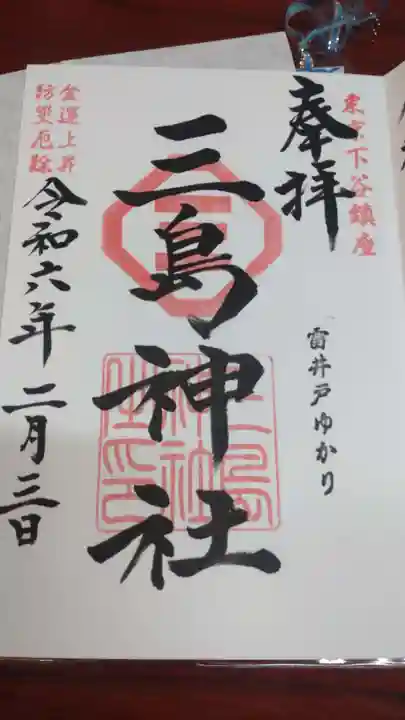 東京下谷鎮座
奉拝
雷井戸ゆかり
三島神社
三島神社之印
金運上昇
防災厄除
令和六年二月三日